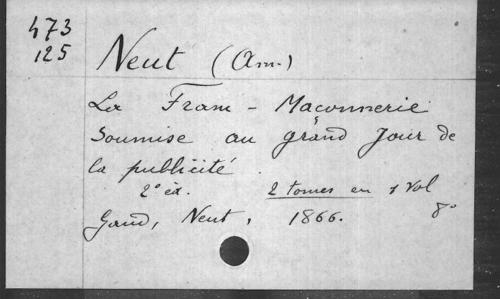 473
125
Neut (Am.)
La Fram - Maçonnerie
Soumise au grand Jour de
la publicité
2e éd. 2 tomes en 1 vol
Gand, Neut, 1866. 8°